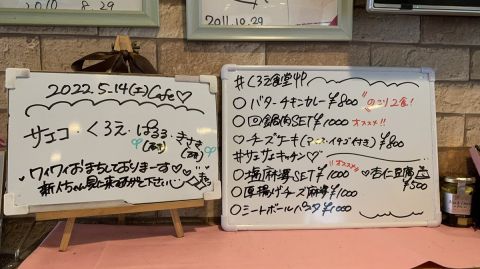 2010 8.29
2011.10.29
2022.5.14(土)Cafe♡
サエコ・くろえ・ぱるる・きさき
ワイワイおまちしておりまーす♡
新人ちゃん見に来てあげて下さい
#くろえ食堂
○バターチキンカレー¥800 のこり2食!
○回鍋肉SET¥1000 オススメ!!
♡チーズケーキ(アイス・イチゴ付き)¥800
#サエザエキッチン♡
オススメ
○麻婆SET¥1000 ♡杏仁豆腐
¥500
○厚揚げチーズ麻婆¥1000
○ミートボールパスタ¥1000